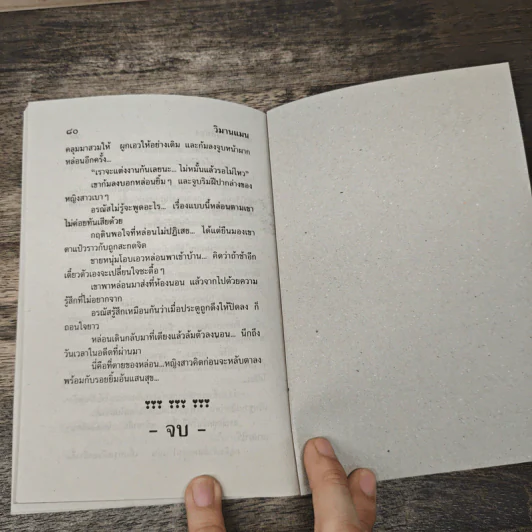 ๘๐ วิมานแมน
คลุมมาสวมให้ ผูกเอวให้อย่างเดิม และก้มลงจูบหน้าผาก
หล่อนอีกครั้ง...
"เราจะแต่งงานกันเลยนะ... ไม่หมั้นแล้วรอไม่ไหว"
เขาก้มลงบอกหล่อนยิ้มๆ และจูบริมฝีปากล่างของ
หญิงสาวเบาๆ
อรณัสไม่รู้จะพูดอะไร... เรื่องแบบนี้หล่อนตามเขา
ไม่ค่อยทันเสียด้วย
กฤตินพอใจที่หล่อนไม่ปฏิเสธ... ได้แต่ยืนมองเขา
ตาแป๋วราวกับถูกสะกดจิต
ชายหนุ่มโอบเอวหล่อนพาเข้าบ้าน... คิดว่าถ้าช้าอีก
เดี๋ยวตัวเองจะเปลี่ยนใจซะดื้อๆ
เขาพาหล่อนมาส่งที่ห้องนอน แล้วจากไปด้วยความ
รู้สึกที่ไม่อยากจาก
อรณัสรู้สึกเหมือนกันว่าเมื่อประตูถูกดึงให้ปิดลง ก็
ถอนใจยาว
หล่อนเดินกลับมาที่เตียงแล้วล้มตัวลงนอน... นึกถึง
วันเวลาในอดีตที่ผ่านมา
นี่คือที่ตายของหล่อน...หญิงสาวคิดก่อนจะหลับตาลง
พร้อมกับรอยยิ้มอันแสนสุข...
- จบ -